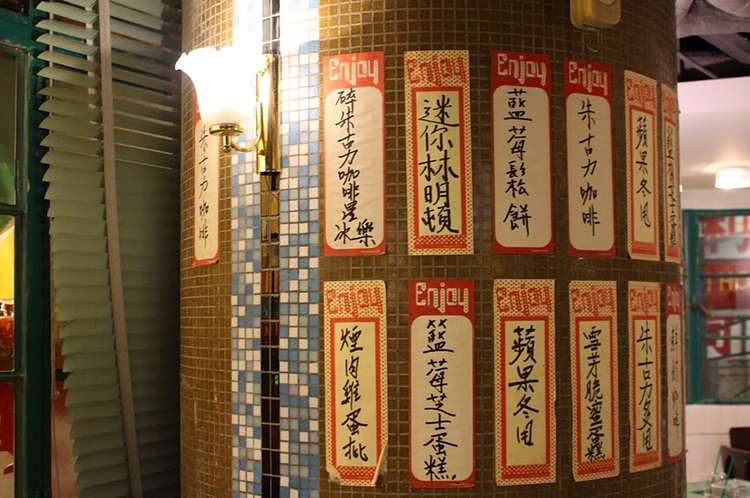 朱古力咖啡
Enjoy
碎朱古力咖啡星冰樂
Enjoy
迷你林明頓
Enjoy
藍莓鬆餅
Enjoy
朱古力咖啡
Enjoy
蘋果冬甩
Enjoy
煙肉雞蛋批
Enjoy
藍莓芝士蛋糕
Enjoy
蘋果冬甩
Enjoy
雪芽脆蜜蛋糕
Enjoy
朱古力冬甩
Enjoy
鮮奶咖啡